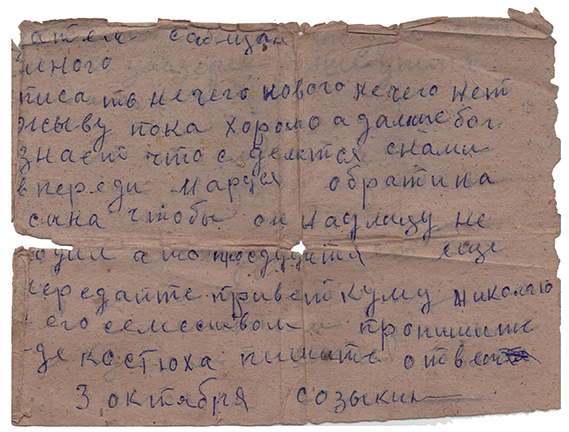 много
писать нечего нового нечего нет
жыву пока хорошо а далше бог
знает что сделится снами
в переди Маруся обрати на
сына чтобы он на улицу не
а то еще
передайте привет куму Николаю
его семеством пропишите
де костюха пишите ответ
3 октября созыкин